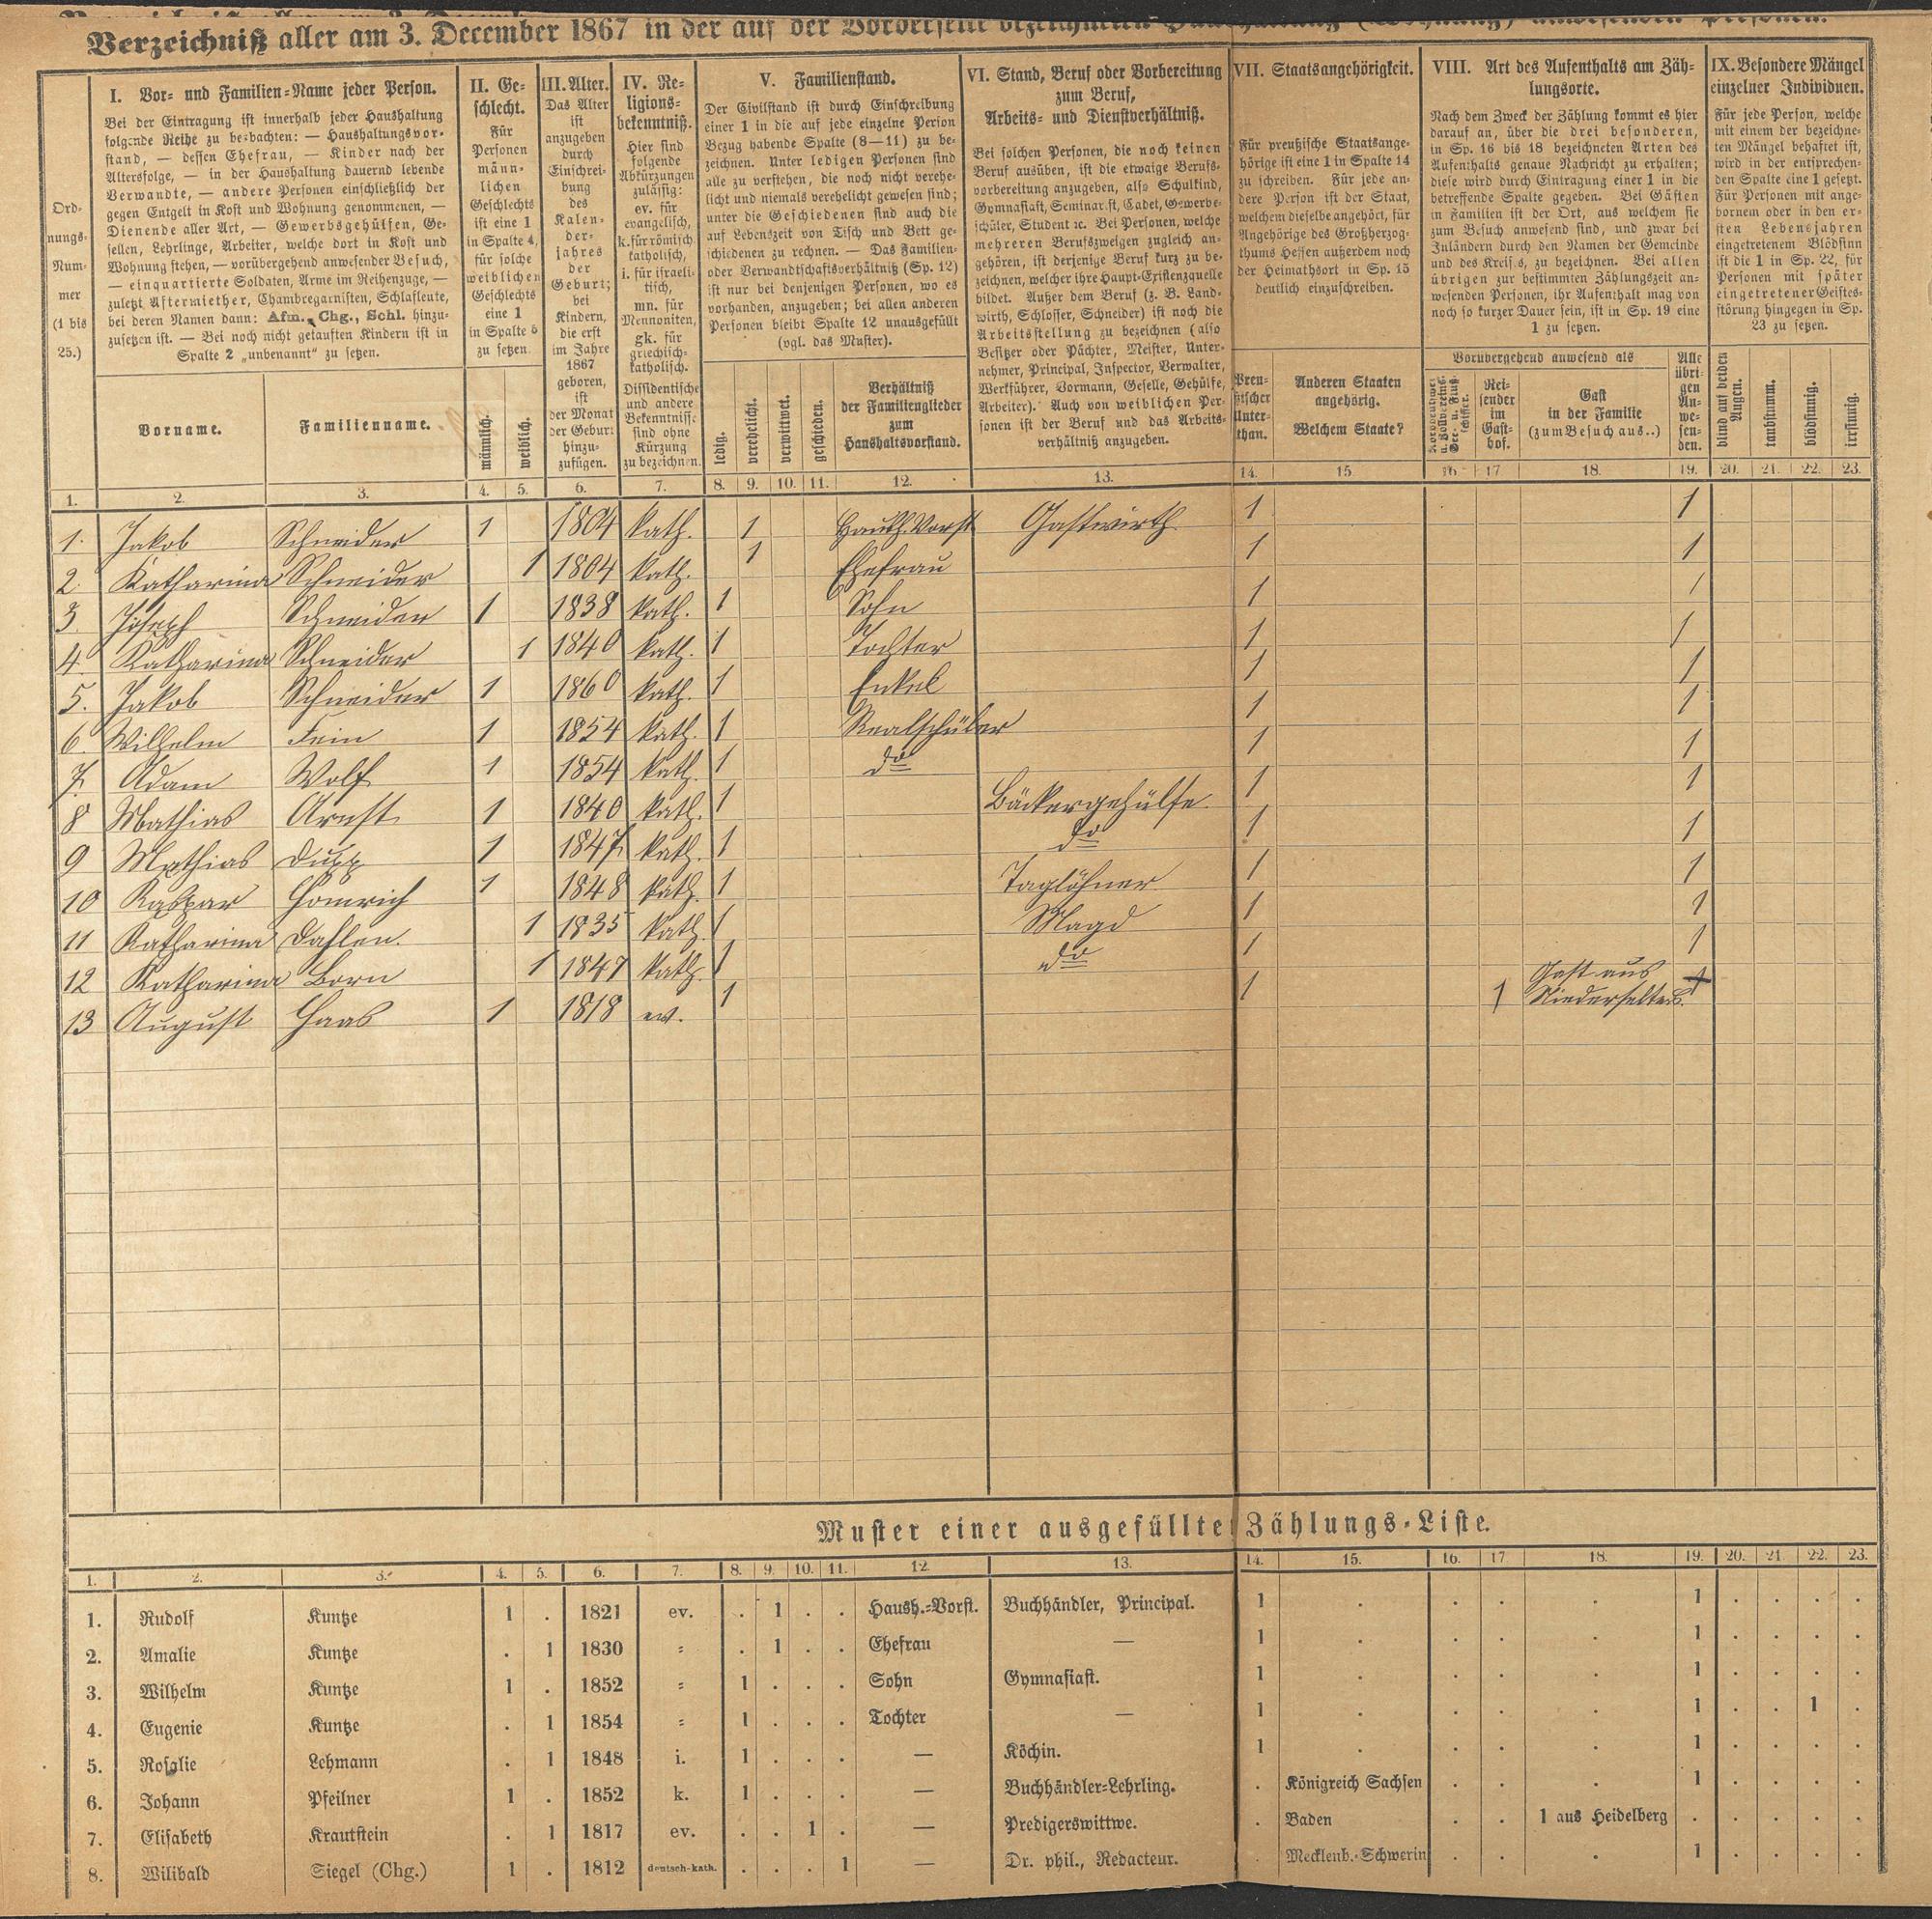 Verzeichniß aller am 3. December 1867 in der auf der Vorderseite bezeichneten
Ord-
nungs-
Num-
mer
(1 bis
25.)
I. Vor- und Familien-Name jeder Person.
Bei der Eintragung ist innerhalb jeder Haushaltung
folgende Reihe zu beobachten: — Haushaltungsvor-
stand, — dessen Ehefrau, — Kinder nach der
Altersfolge, — in der Haushaltung dauernd lebende
Verwandte, — andere Personen einschließlich der
gegen Entgelt in Kost und Wohnung genommenen, —
Dienende aller Art, — Gewerbsgehülfen, Ge-
sellen, Lehrlinge, Arbeiter, welche dort in Kost und
Wohnung stehen, — vorübergehend anwesender Besuch,
— einquartierte Soldaten, Arme im Reihenzuge, —
zuletzt Aftermiether, Chambregarnisten, Schlafleute,
bei deren Namen dann: Afm., Chg., Schl. hinzu-
zusetzen ist. — Bei noch nicht getauften Kindern ist in
Spalte 2 „unbenannt“ zu setzen.
Vorname.
Familienname.
II. Ge-
schlecht.
Für
Personen
männ-
lichen
Geschlechts
ist eine 1
in Spalte 4,
für solche
weiblichen
Geschlechts
eine 1
in Spalte 5
zu setzen.
männlich.
weiblich.
III. Alter.
Das Alter
ist
anzugeben
durch
Einschrei-
bung
des
Kalen-
der-
jahres
der
Geburt;
bei
Kindern,
die erst
im Jahre
1867
geboren,
ist
der Monat
der Geburt
hinzu-
zufügen.
IV. Re-
ligions-
bekenntniß.
Hier sind
folgende
Abkürzungen
zulässig:
ev. für
evangelisch,
k. für römisch-
katholisch,
i. für israeli-
tisch,
mn. für
Mennoniten,
gk. für
griechisch-
katholisch.
Dissidentische
und andere
Bekenntnisse
sind ohne
Kürzung
zu bezeichnen.
V. Familienstand.
Der Civilstand ist durch Einschreibung
einer 1 in die auf jede einzelne Person
Bezug habende Spalte (8—11) zu be-
zeichnen. Unter ledigen Personen sind
alle zu verstehen, die noch nicht verehe-
licht und niemals verehelicht gewesen sind;
unter die Geschiedenen sind auch die
auf Lebenszeit von Tisch und Bett ge-
schiedenen zu rechnen. — Das Familien-
oder Verwandtschaftsverhältniß (Sp. 12)
ist nur bei denjenigen Personen, wo es
vorhanden, anzugeben; bei allen anderen
Personen bleibt Spalte 12 unausgefüllt
(vgl. das Muster).
ledig.
verehelicht.
verwittwet.
geschieden.
Verhältniß
der Familienglieder
zum
Haushaltsvorstand.
VI. Stand, Beruf oder Vorbereitung
zum Beruf,
Arbeits- und Dienstverhältniß.
Bei solchen Personen, die noch keinen
Beruf ausüben, ist die etwaige Berufs-
vorbereitung anzugeben, also Schulkind,
Gymnasiast, Seminarist, Cadet, Gewerbe-
schüler, Student 2c. Bei Personen, welche
mehreren Berufszweigen zugleich an-
gehören, ist derjenige Beruf kurz zu be-
zeichnen, welcher ihre Haupt-Existenzquelle
bildet. Außer dem Beruf (z. B. Land-
wirth, Schlosser, Schneider) ist noch die
Arbeitsstellung zu bezeichnen (also
Besitzer oder Pächter, Meister, Unter-
nehmer, Principal, Inspector, Verwalter,
Werkführer, Vormann, Geselle, Gehülfe,
Arbeiter). Auch von weiblichen Per-
sonen ist der Beruf und das Arbeits-
verhältniß anzugeben.
VII. Staatsangehörigkeit.
Für preußische Staatsange-
hörige ist eine 1 in Spalte 14
zu schreiben. Für jede an-
dere Person ist der Staat,
welchem dieselbe angehört, für
Angehörige des Großherzog-
thums Hessen außerdem noch
der Heimathsort in Sp. 15
deutlich einzuschreiben.
Preu-
ßischer
Unter-
than.
Anderen Staaten
angehörig.
Welchem Staate?
VIII. Art des Aufenthalts am Zäh-
lungsorte.
Nach dem Zweck der Zählung kommt es hier
darauf an, über die drei besonderen,
in Sp. 16 bis 18 bezeichneten Arten des
Aufenthalts genaue Nachricht zu erhalten;
diese wird durch Eintragung einer 1 in die
betreffende Spalte gegeben. Bei Gästen
in Familien ist der Ort, aus welchem sie
zum Besuch anwesend sind, und zwar bei
Inländern durch den Namen der Gemeinde
und des Kreises, zu bezeichnen. Bei allen
übrigen zur bestimmten Zählungszeit an-
wesenden Personen, ihr Aufenthalt mag von
noch so kurzer Dauer sein, ist in Sp. 19 eine
1 zu setzen.
Vorübergehend anwesend als
Rei-
sender
im
Gast-
hof.
Gast
in der Familie
(zum Besuch aus..)
Alle
übri-
gen
An-
we-
sen-
den.
IX. Besondere Mängel
einzelner Individuen.
Für jede Person, welche
mit einem der bezeichne-
ten Mängel behaftet ist,
wird in der entsprechen-
den Spalte eine 1 gesetzt.
Für Personen mit ange-
bornem oder in den er-
sten Lebensjahren
eingetretenem Blödsinn
ist die 1 in Sp. 22, für
Personen mit später
eingetretener Geistes-
störung hingegen in Sp.
23 zu setzen.
blind auf beiden
Augen.
taubstumm.
blödsinnig.
irrsinnig.
1. 2. 3. 4. 5. 6. 7. 8. 9. 10. 11. 12. 13. 14. 15 16 17 18. 19. 20. 21. 22. 23.
1. Jakob Schneider 1 1804 kath. 1 Haush. Vorst Gastwirth 1 1
2. Katharina Schneider 1 1804 kath. 1 Ehefrau 1 1
3 Joseph Schneider 1 1838 kath. 1 Sohn 1 1
4. Katharina Schneider 1 1840 kath. 1 Tochter 1 1
5. Jakob Schneider 1 1860 kath. 1 Enkel 1 1
6. Wilhelm Fein 1 1854 kath. 1 Realschüler 1 1
7. Adam Wolf 1 1854 kath. 1 do 1 1
8 Mathias Arnst 1 1840 kath. 1 Bäckergehülfe 1 1
9 Mathias Dupp 1 1847 kath. 1 do 1 1
10 Kaspar Homrich 1 1848 kath. 1 Taglöhner 1 1
11 Katharina Dahlen. 1 1835 kath. 1 Magd 1 1
12 Katharina Born 1 1847 kath. 1 do 1 1
13 August Haas 1 1818 ev. 1 1 1 Gast aus
Niederselters.
Muster einer ausgefüllten Zählungs-Liste.
1. 2. 3. 4. 5. 6. 7. 8. 9. 10. 11. 12. 13. 14. 15. 16. 17 18. 19. 20. 21 22. 23.
1. Rudolf Kuntze 1 . 1821 ev. . 1 . . Haush.-Vorst. Buchhändler, Principal. 1 . . . . 1 . . . .
2. Amalie Kuntze . 1 1830 = . 1 . . Ehefrau — 1 . . . . 1 . . . .
3. Wilhelm Kuntze 1 . 1852 = 1 . . . Sohn Gymnasiast. 1 . . . . 1 . . . .
4. Eugenie Kuntze . 1 1854 = 1 . . . Tochter — 1 . . . . 1 . . 1 .
5. Rosalie Lehmann . 1 1848 i. 1 . . . — Köchin. 1 . . . . 1 . . . .
6. Johann Pfeilner 1 . 1852 k. 1 . . . — Buchhändler-Lehrling. . Königreich Sachsen . . . 1 . . . .
7. Elisabeth Krautstein . 1 1817 ev. . . 1 . — Predigerswittwe. . Baden . . 1 aus Heidelberg . . . . .
8. Wilibald Siegel (Chg.) 1 . 1812 deutsch-kath. . . . 1 — Dr. phil., Redacteur. . Mecklenb.-Schwerin . . . 1 . . . .